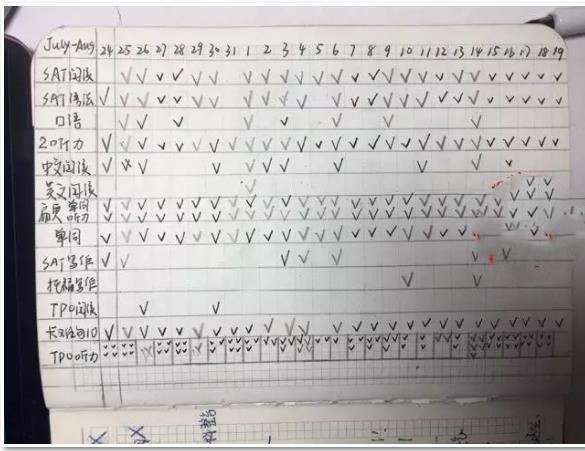 July-Aug 24 25 26 27 28 29 30 31 1 2 3 4 5 6 7 8 9 10 11 12 13 14 15 16 17 18 19
SAT阅读
SAT语法
口语
20听力
中文阅读
英文阅读
扇贝 单词
听力
单词
SAT写作
托福写作
TPO阅读
TPO听力